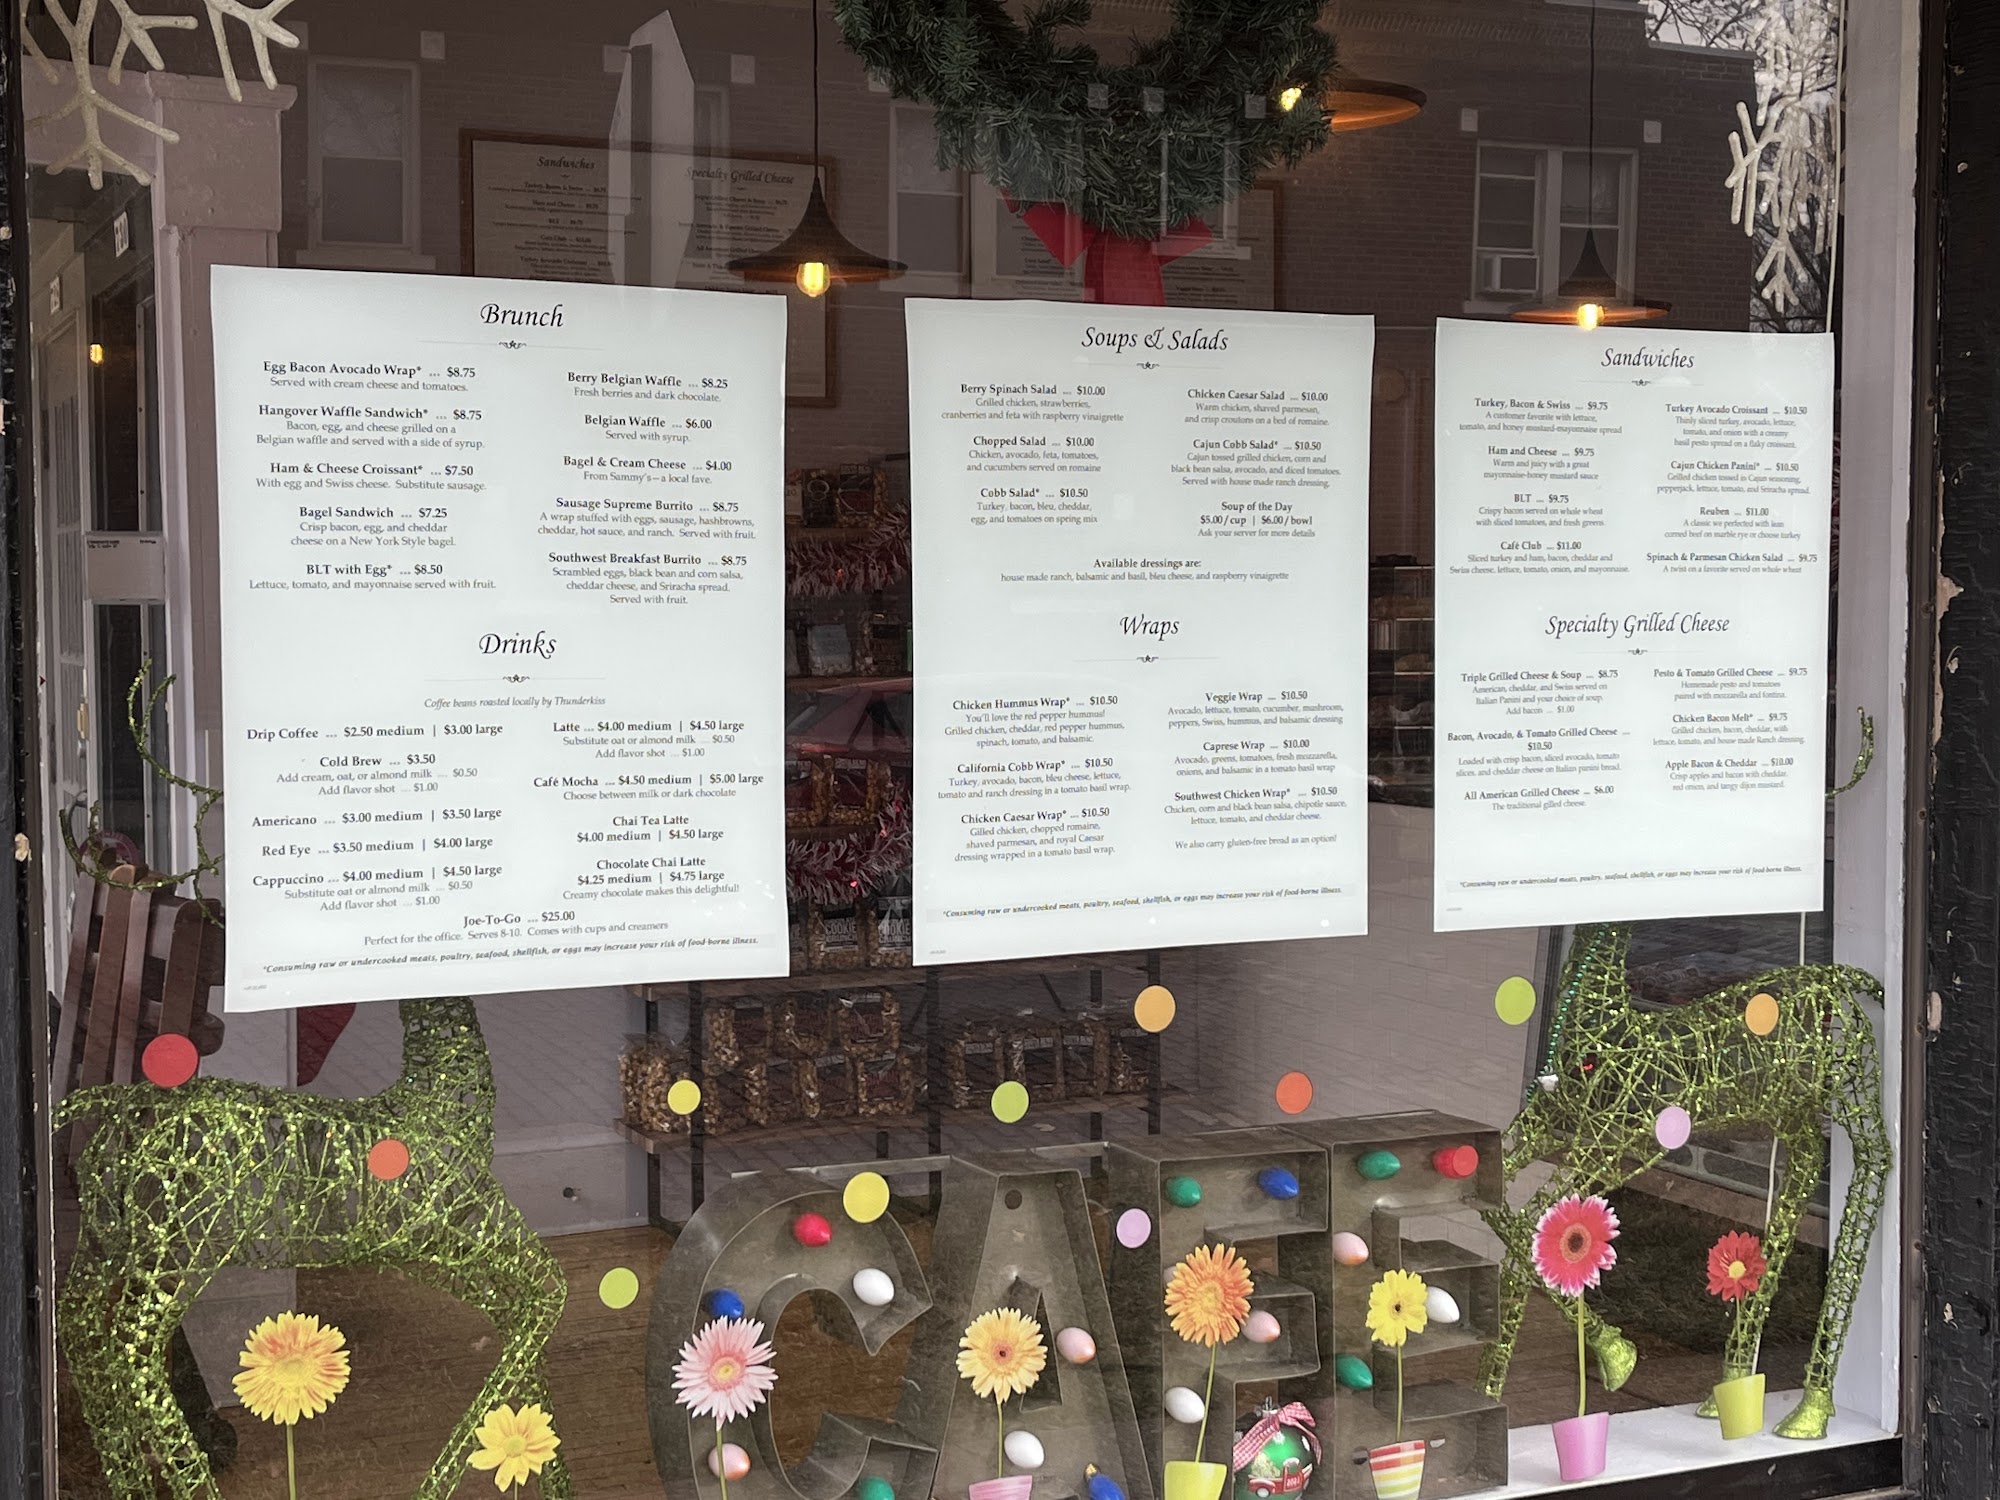 Sandwiches
Specialty Grilled Cheese
Brunch
Egg Bacon Avocado Wrap* ... $8.75
Served with cream cheese and tomatoes.
Hangover Waffle Sandwich* ... $8.75
Bacon, egg, and cheese grilled on a
Belgian waffle and served with a side of syrup.
Ham & Cheese Croissant* ... $7.50
With egg and Swiss cheese. Substitute sausage.
Bagel Sandwich ... $7.25
Crisp bacon, egg, and cheddar
cheese on a New York Style bagel.
BLT with Egg* ... $8.50
Lettuce, tomato, and mayonnaise served with fruit.
Berry Belgian Waffle ... $8.25
Fresh berries and dark chocolate.
Belgian Waffle ... $6.00
Served with syrup.
Bagel & Cream Cheese ... $4.00
From Sammy's—a local fave.
Sausage Supreme Burrito ... $8.75
A wrap stuffed with eggs, sausage, hashbrowns,
cheddar, hot sauce, and ranch. Served with fruit.
Southwest Breakfast Burrito ... $8.75
Scrambled eggs, black bean and corn salsa,
cheddar cheese, and Sriracha spread.
Served with fruit.
Drinks
Coffee beans roasted locally by Thunderkiss
Drip Coffee ... $2.50 medium | $3.00 large
Cold Brew ... $3.50
Add cream, oat, or almond milk ... $0.50
Add flavor shot ... $1.00
Americano ... $3.00 medium | $3.50 large
Red Eye ... $3.50 medium | $4.00 large
Cappuccino ... $4.00 medium | $4.50 large
Substitute oat or almond milk ... $0.50
Add flavor shot ... $1.00
Latte ... $4.00 medium | $4.50 large
Substitute oat or almond milk ... $0.50
Add flavor shot ... $1.00
Café Mocha ... $4.50 medium | $5.00 large
Choose between milk or dark chocolate
Chai Tea Latte
$4.00 medium | $4.50 large
Chocolate Chai Latte
$4.25 medium | $4.75 large
Creamy chocolate makes this delightful!
Joe-To-Go ... $25.00
Perfect for the office. Serves 8-10. Comes with cups and creamers
*Consuming raw or undercooked meats, poultry, seafood, shellfish, or eggs may increase your risk of food-borne illness.
Soups & Salads
Berry Spinach Salad ... $10.00
Grilled chicken, strawberries,
cranberries and feta with raspberry vinaigrette
Chopped Salad ... $10.00
Chicken, avocado, feta, tomatoes,
and cucumbers served on romaine
Cobb Salad* ... $10.50
Turkey, bacon, bleu, cheddar,
egg, and tomatoes on spring mix
Chicken Caesar Salad ... $10.00
Warm chicken, shaved parmesan,
and crisp croutons on a bed of romaine.
Cajun Cobb Salad* ... $10.50
Cajun tossed grilled chicken, corn and
black bean salsa, avocado, and diced tomatoes.
Served with house made ranch dressing.
Soup of the Day
$5.00/cup | $6.00/bowl
Ask your server for more details
Available dressings are:
house made ranch, balsamic and basil, bleu cheese, and raspberry vinaigrette
Wraps
Chicken Hummus Wrap* ... $10.50
You'll love the red pepper hummus!
Grilled chicken, cheddar, red pepper hummus,
spinach, tomato, and balsamic.
California Cobb Wrap* ... $10.50
Turkey, avocado, bacon, bleu cheese, lettuce,
tomato and ranch dressing in a tomato basil wrap.
Chicken Caesar Wrap* ... $10.50
Gilled chicken, chopped romaine,
shaved parmesan, and royal Caesar
dressing wrapped in a tomato basil wrap.
Veggie Wrap ... $10.50
Avocado, lettuce, tomato, cucumber, mushroom,
peppers, Swiss, hummus, and balsamic dressing
Caprese Wrap ... $10.00
Avocado, greens, tomatoes, fresh mozzarella,
onions, and balsamic in a tomato basil wrap
Southwest Chicken Wrap* ... $10.50
Chicken, corn and black bean salsa, chipotle sauce,
lettuce, tomato, and cheddar cheese.
We also carry gluten-free bread as an option!
*Consuming raw or undercooked meats, poultry, seafood, shellfish, or eggs may increase your risk of food-borne illness.
Sandwiches
Turkey, Bacon & Swiss ... $9.75
A customer favorite with lettuce,
tomato, and honey mustard-mayonnaise spread
Ham and Cheese ... $9.75
Warm and juicy with a great
mayonnaise-honey mustard sauce
BLT ... $9.75
Crispy bacon served on whole wheat
with sliced tomatoes, and fresh greens.
Café Club ... $11.00
Sliced turkey and ham, bacon, cheddar and
Swiss cheese, lettuce, tomato, onion, and mayonnaise.
Turkey Avocado Croissant ... $10.50
Thinly sliced turkey, avocado, lettuce,
tomato, and onion with a creamy
basil pesto spread on a flaky croissant.
Cajun Chicken Panini* ... $10.50
Grilled chicken tossed in Cajun seasoning,
pepperjack, lettuce, tomato, and Sriracha spread.
Reuben ... $11.00
A classic we perfected with lean
corned beef on marble rye or choose turkey
Spinach & Parmesan Chicken Salad ... $9.75
A twist on a favorite served on whole wheat
Specialty Grilled Cheese
Triple Grilled Cheese & Soup ... $8.75
American, cheddar, and Swiss served on
Italian Panini and your choice of soup.
Add bacon ... $1.00
Bacon, Avocado, & Tomato Grilled Cheese ...
$10.50
Loaded with crisp bacon, sliced avocado, tomato
slices, and cheddar cheese on Italian panini bread.
All American Grilled Cheese ... $6.00
The traditional gilled cheese.
Pesto & Tomato Grilled Cheese ... $9.75
Homemade pesto and tomatoes
paired with mozzarella and fontina.
Chicken Bacon Melt* ... $9.75
Grilled chicken, bacon, cheddar, with
lettuce, tomato, and house made Ranch dressing.
Apple Bacon & Cheddar ... $10.00
Crisp apples and bacon with cheddar,
red onion, and tangy dijon mustard.
*Consuming raw or undercooked meats, poultry, seafood, shellfish, or eggs may increase your risk of food-borne illness.
COOKIE
CAFE